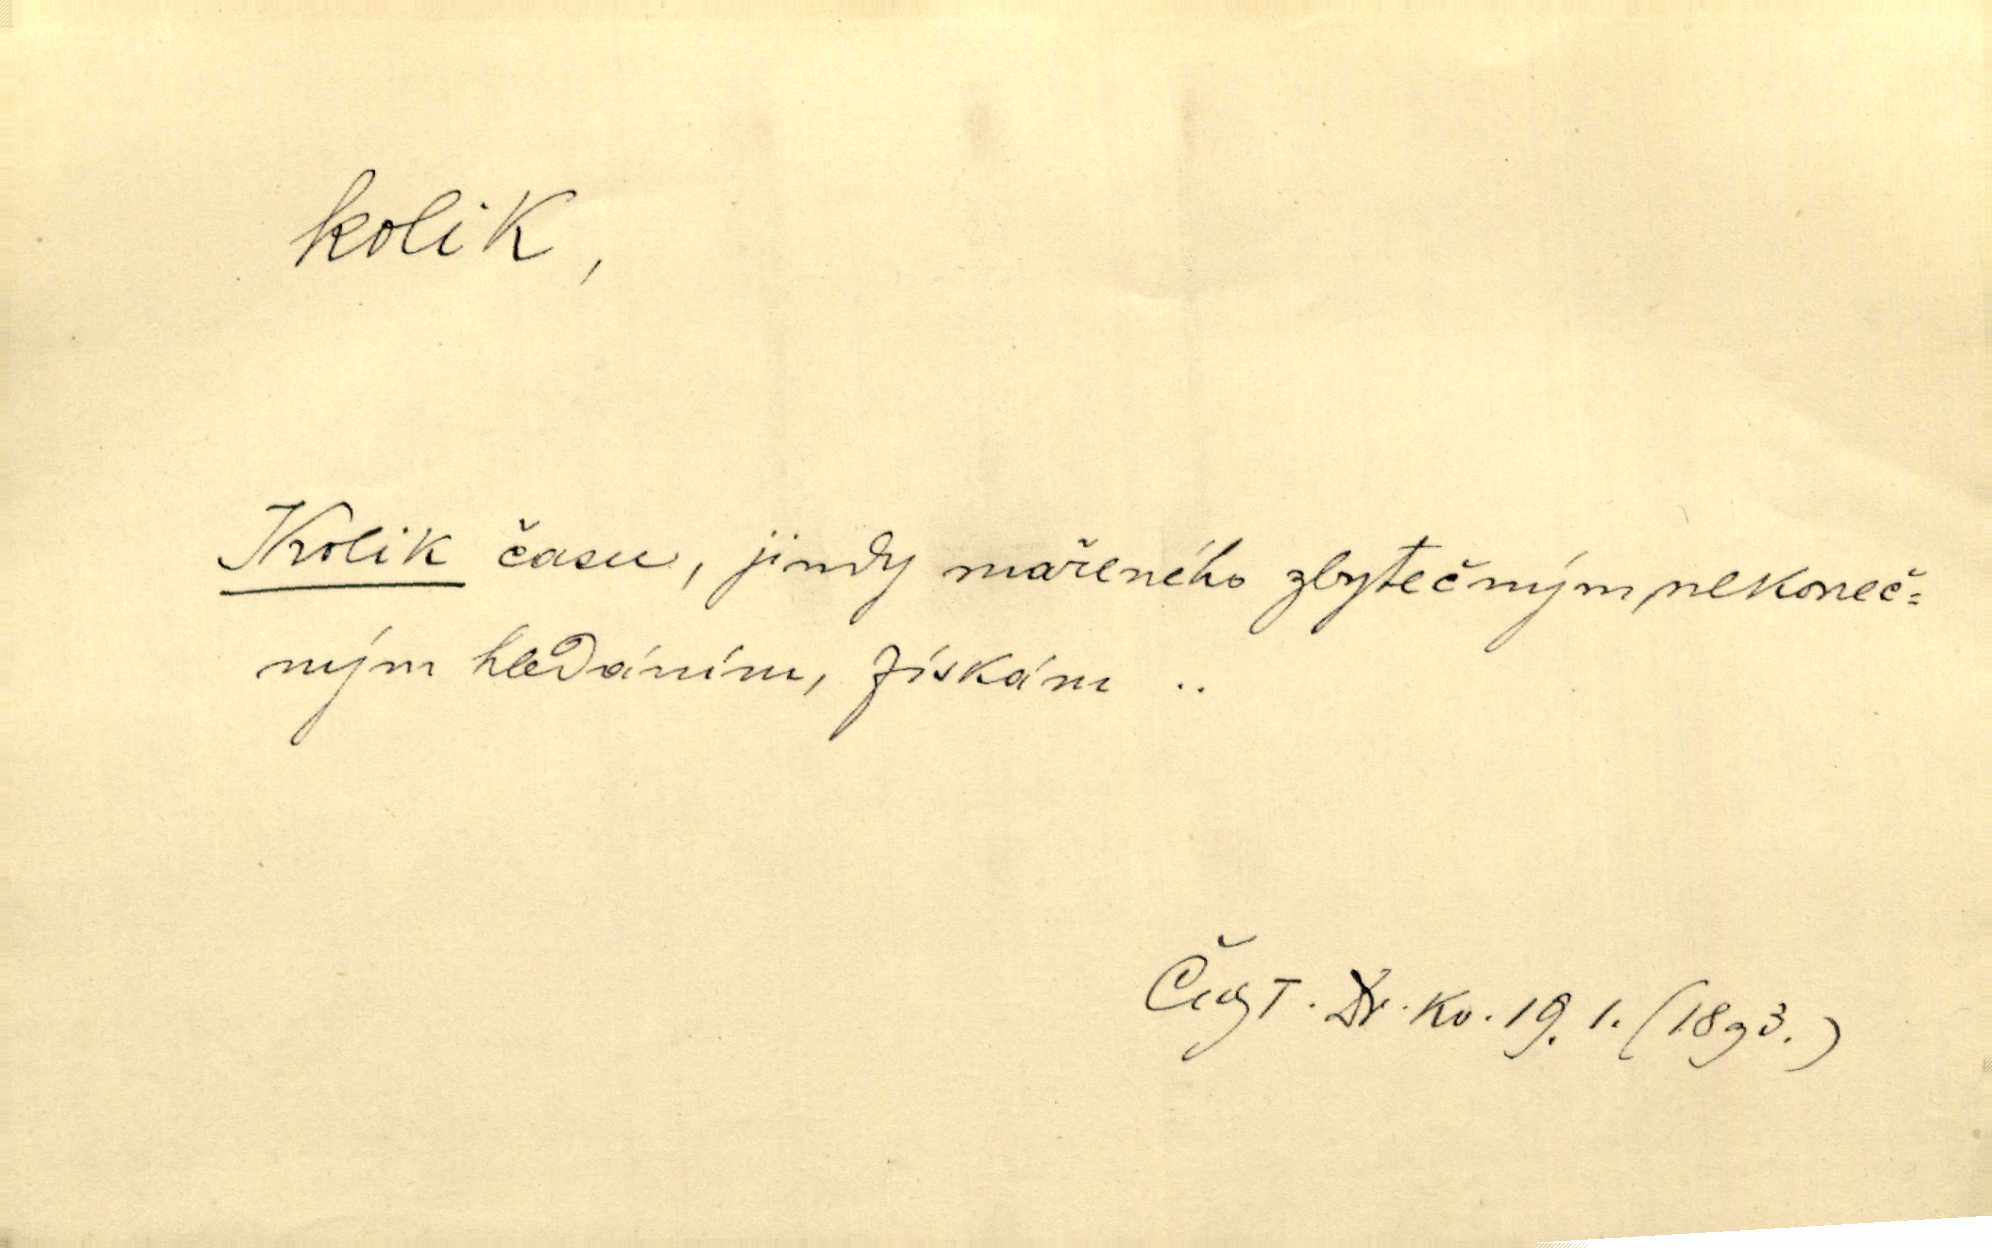 kolik,
Kolik času, jindy mařeného zbytečným, nekoneč=
ným hledáním, získám ..
Kv. 19. 1. (1893.)